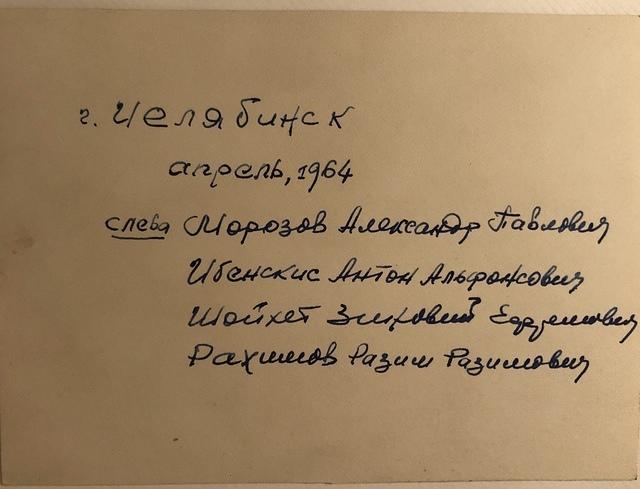 г. Челябинск
апрель, 1964
слева Морозов Александр Павлович
Ибенскис Антон Альфонсович
Шойхет Зиновий Ефремович
Рахимов Разим Разимович